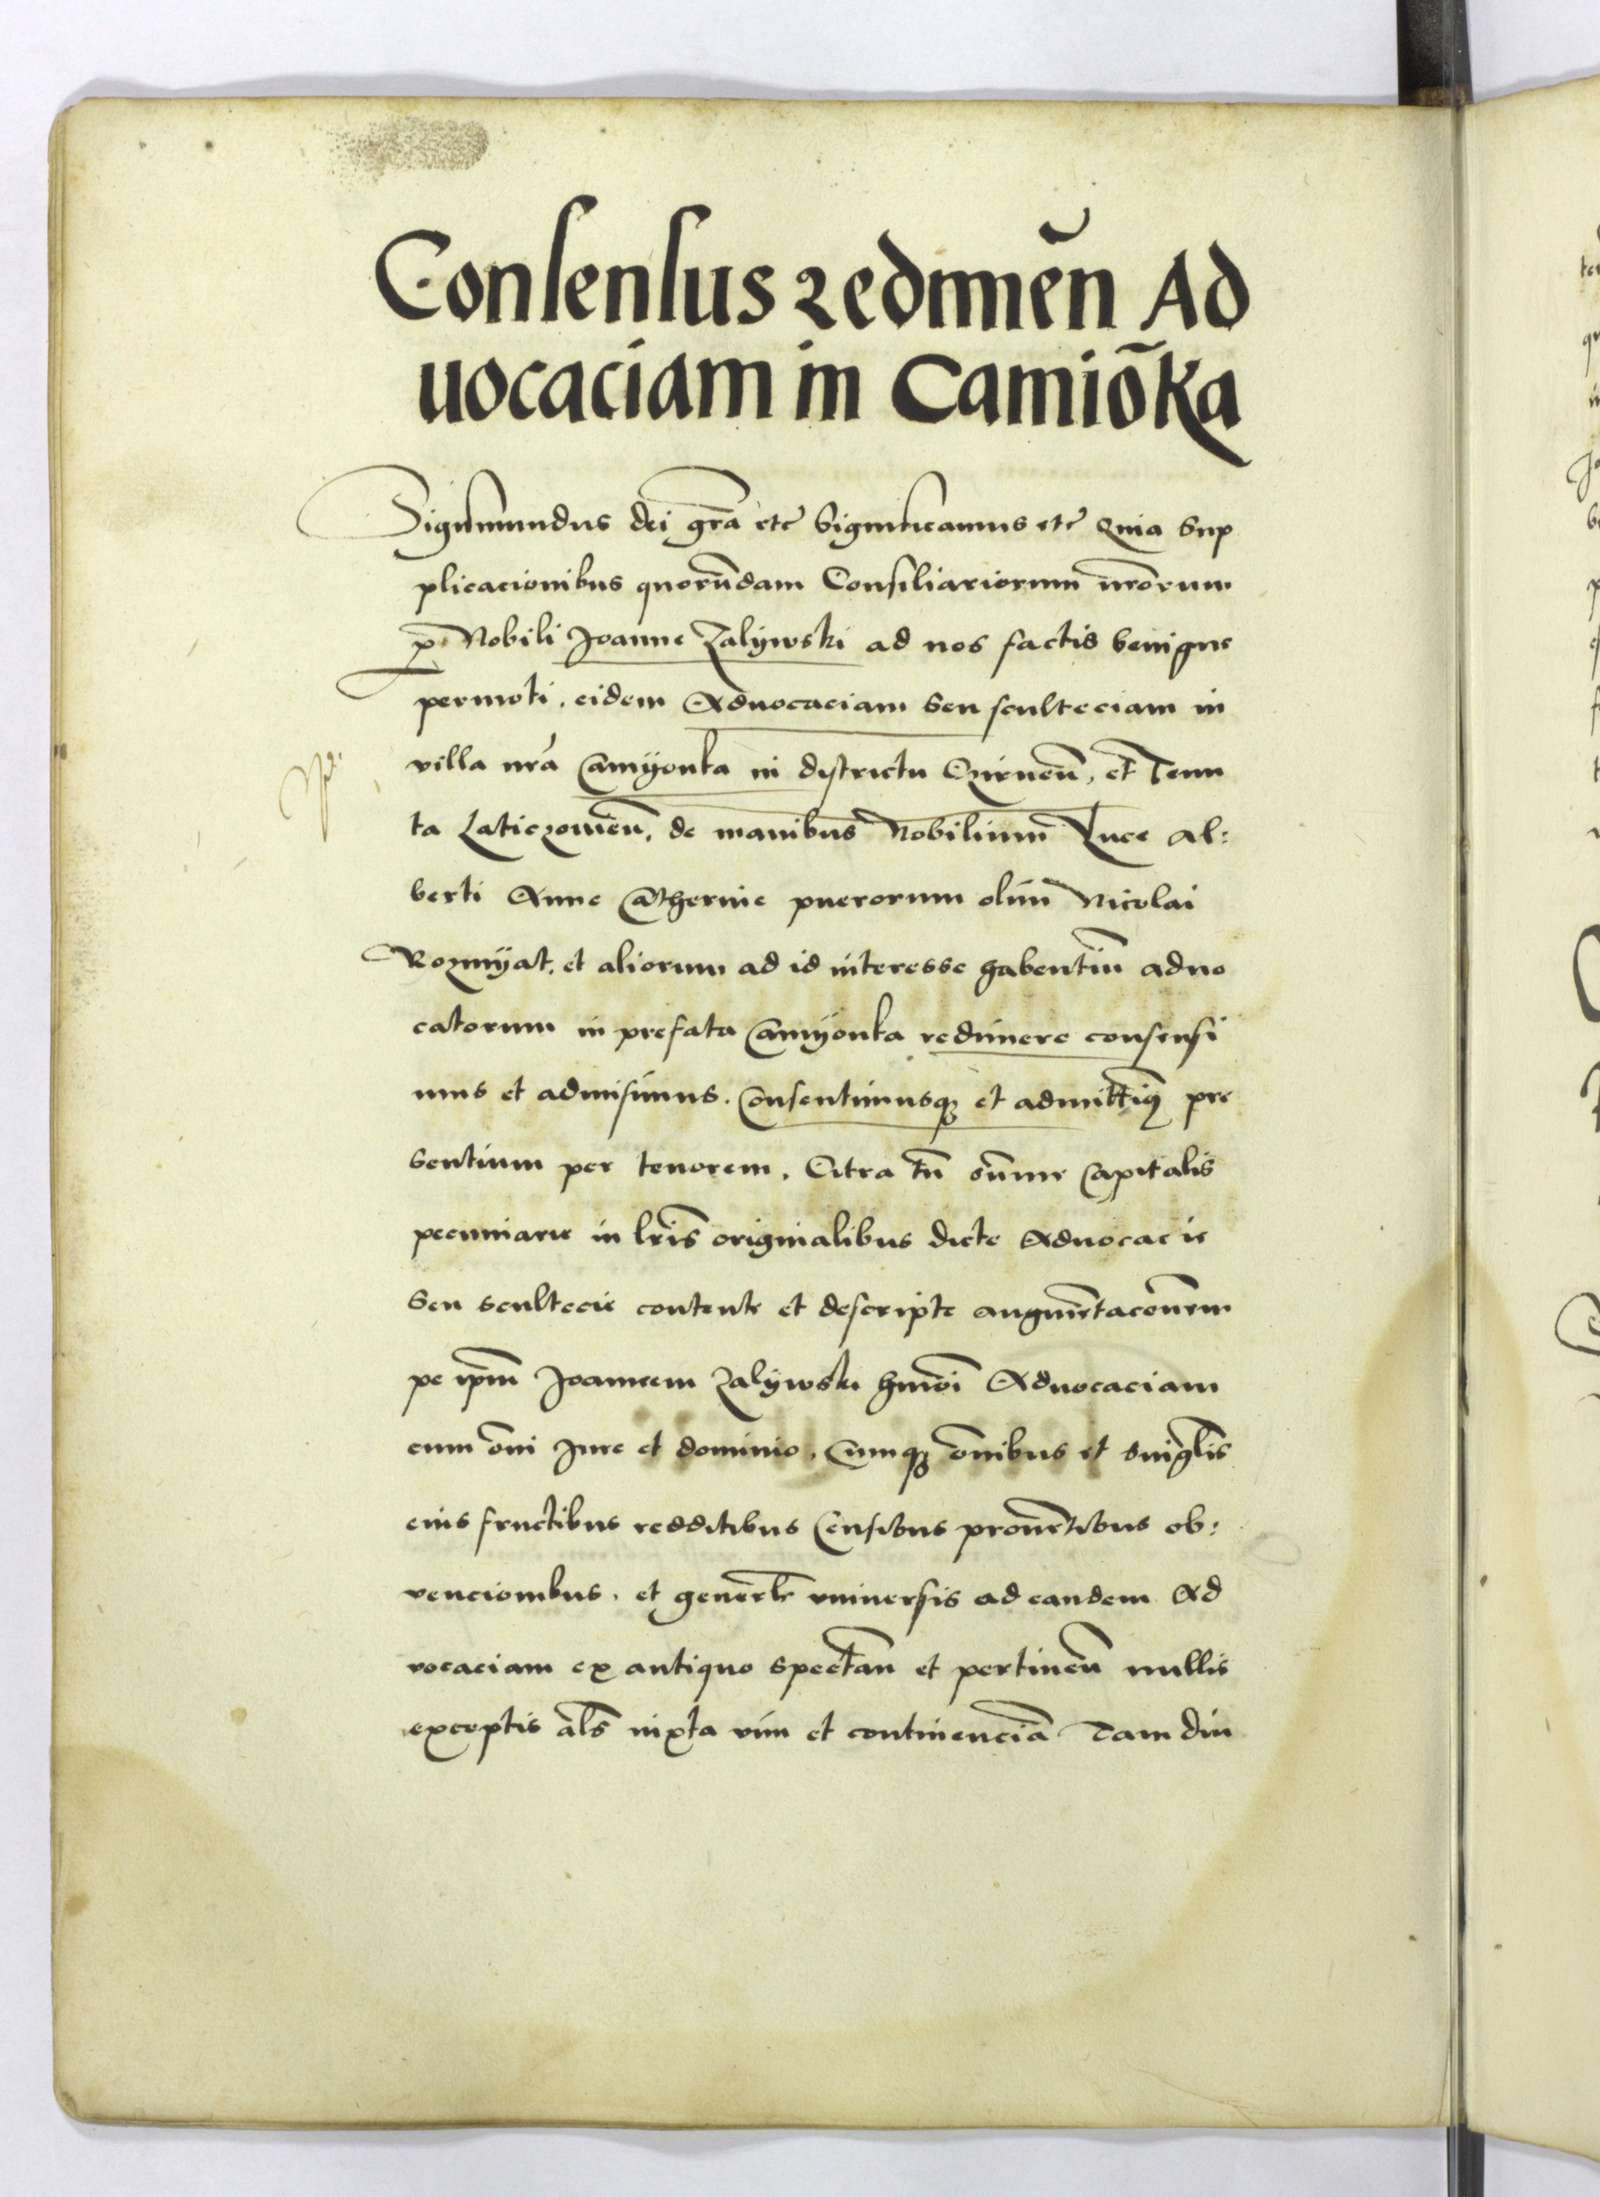 Consensus redimen̄ Ad
uocaciam in Camiōka
Sigismundus dei gr̄a etc̄ Significamus etc̄ Quia Sup
plicacionibus quorūdam Consiliariorum nr̄orum
p̄ Nobili Joanne Zalÿwski ad nos factis benigne
permoti, eidem Aduocaciam seu sculteciam in
villa nr̄a Camÿonka in districtu Czirneṅ, et Tenu
ta Laticzovieṅ, de manibus Nobilium Luce Al:
berti Anne Catherine puerorum olim Nicolai
Rozmÿat, et aliorum ad id interesse habentiū aduo
catorum in prefata Camÿonka redimere consensi
mus et admisimus. Consentimusqꝫ et admittimꝰ pre
sentium per tenorem, Citra tn̄ sūme Capitalis
pecuniarie in lr̄is originalibus dicte Aduocacie
Seu scultecie contente et descripte augmētacōnem
pe ipm̄ Joannem Zalÿwski hm̄oi Aduocaciam
cum ōni Jure et dominio, Cumqꝫ ōnibus et singl̄is
eius fructibus redditibus Censibus prouētibus ob:
vencionibus, et generlr̄ vniuersis ad eandem Ad
vocaciam ex antiquo spectaṅ et pertineṅ nullis
exceptis al̄s iuxta vim et continenciā Tam diu